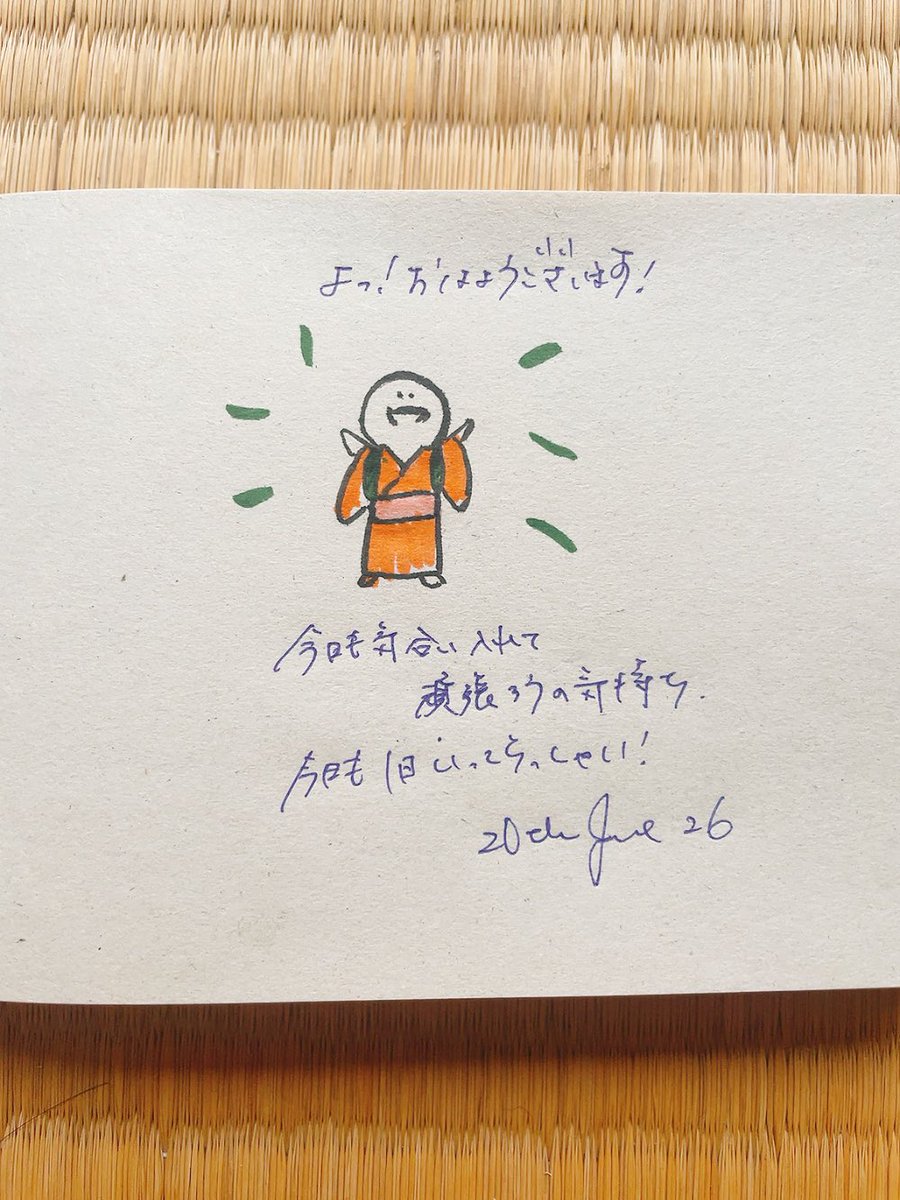 よっ!おはようございます!
今日も気合い入れて
頑張ろうの気持ち.
今日も1日いってらっしゃい!
20th June 26